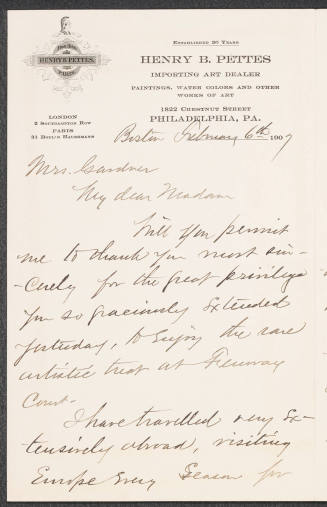 Fine Arts
HENRY B. PETTES,
PHILA.
ESTABLISHED 30 YEARS
HENRY B. PETTES
IMPORTING ART DEALER
PAINTINGS, WATER COLORS AND OTHER
WORKS OF ART
1822 CHESTNUT STREET
PHILADELPHIA, PA.
LONDON
2 SOUTHAMPTON ROW
PARIS
31 BOUL'D HAUSSMANN
Boston February 6th 1907
Mrs. Gardner
My dear Madam
Will you permit
me to thank you most sin-
-cerely for the great privilege
you so graciously extended
yesterday, to enjoy the rare
artistic treat at Fenway
Court.
I have travelled very Ex-
tensively abroad, visiting
Europe Every Season for